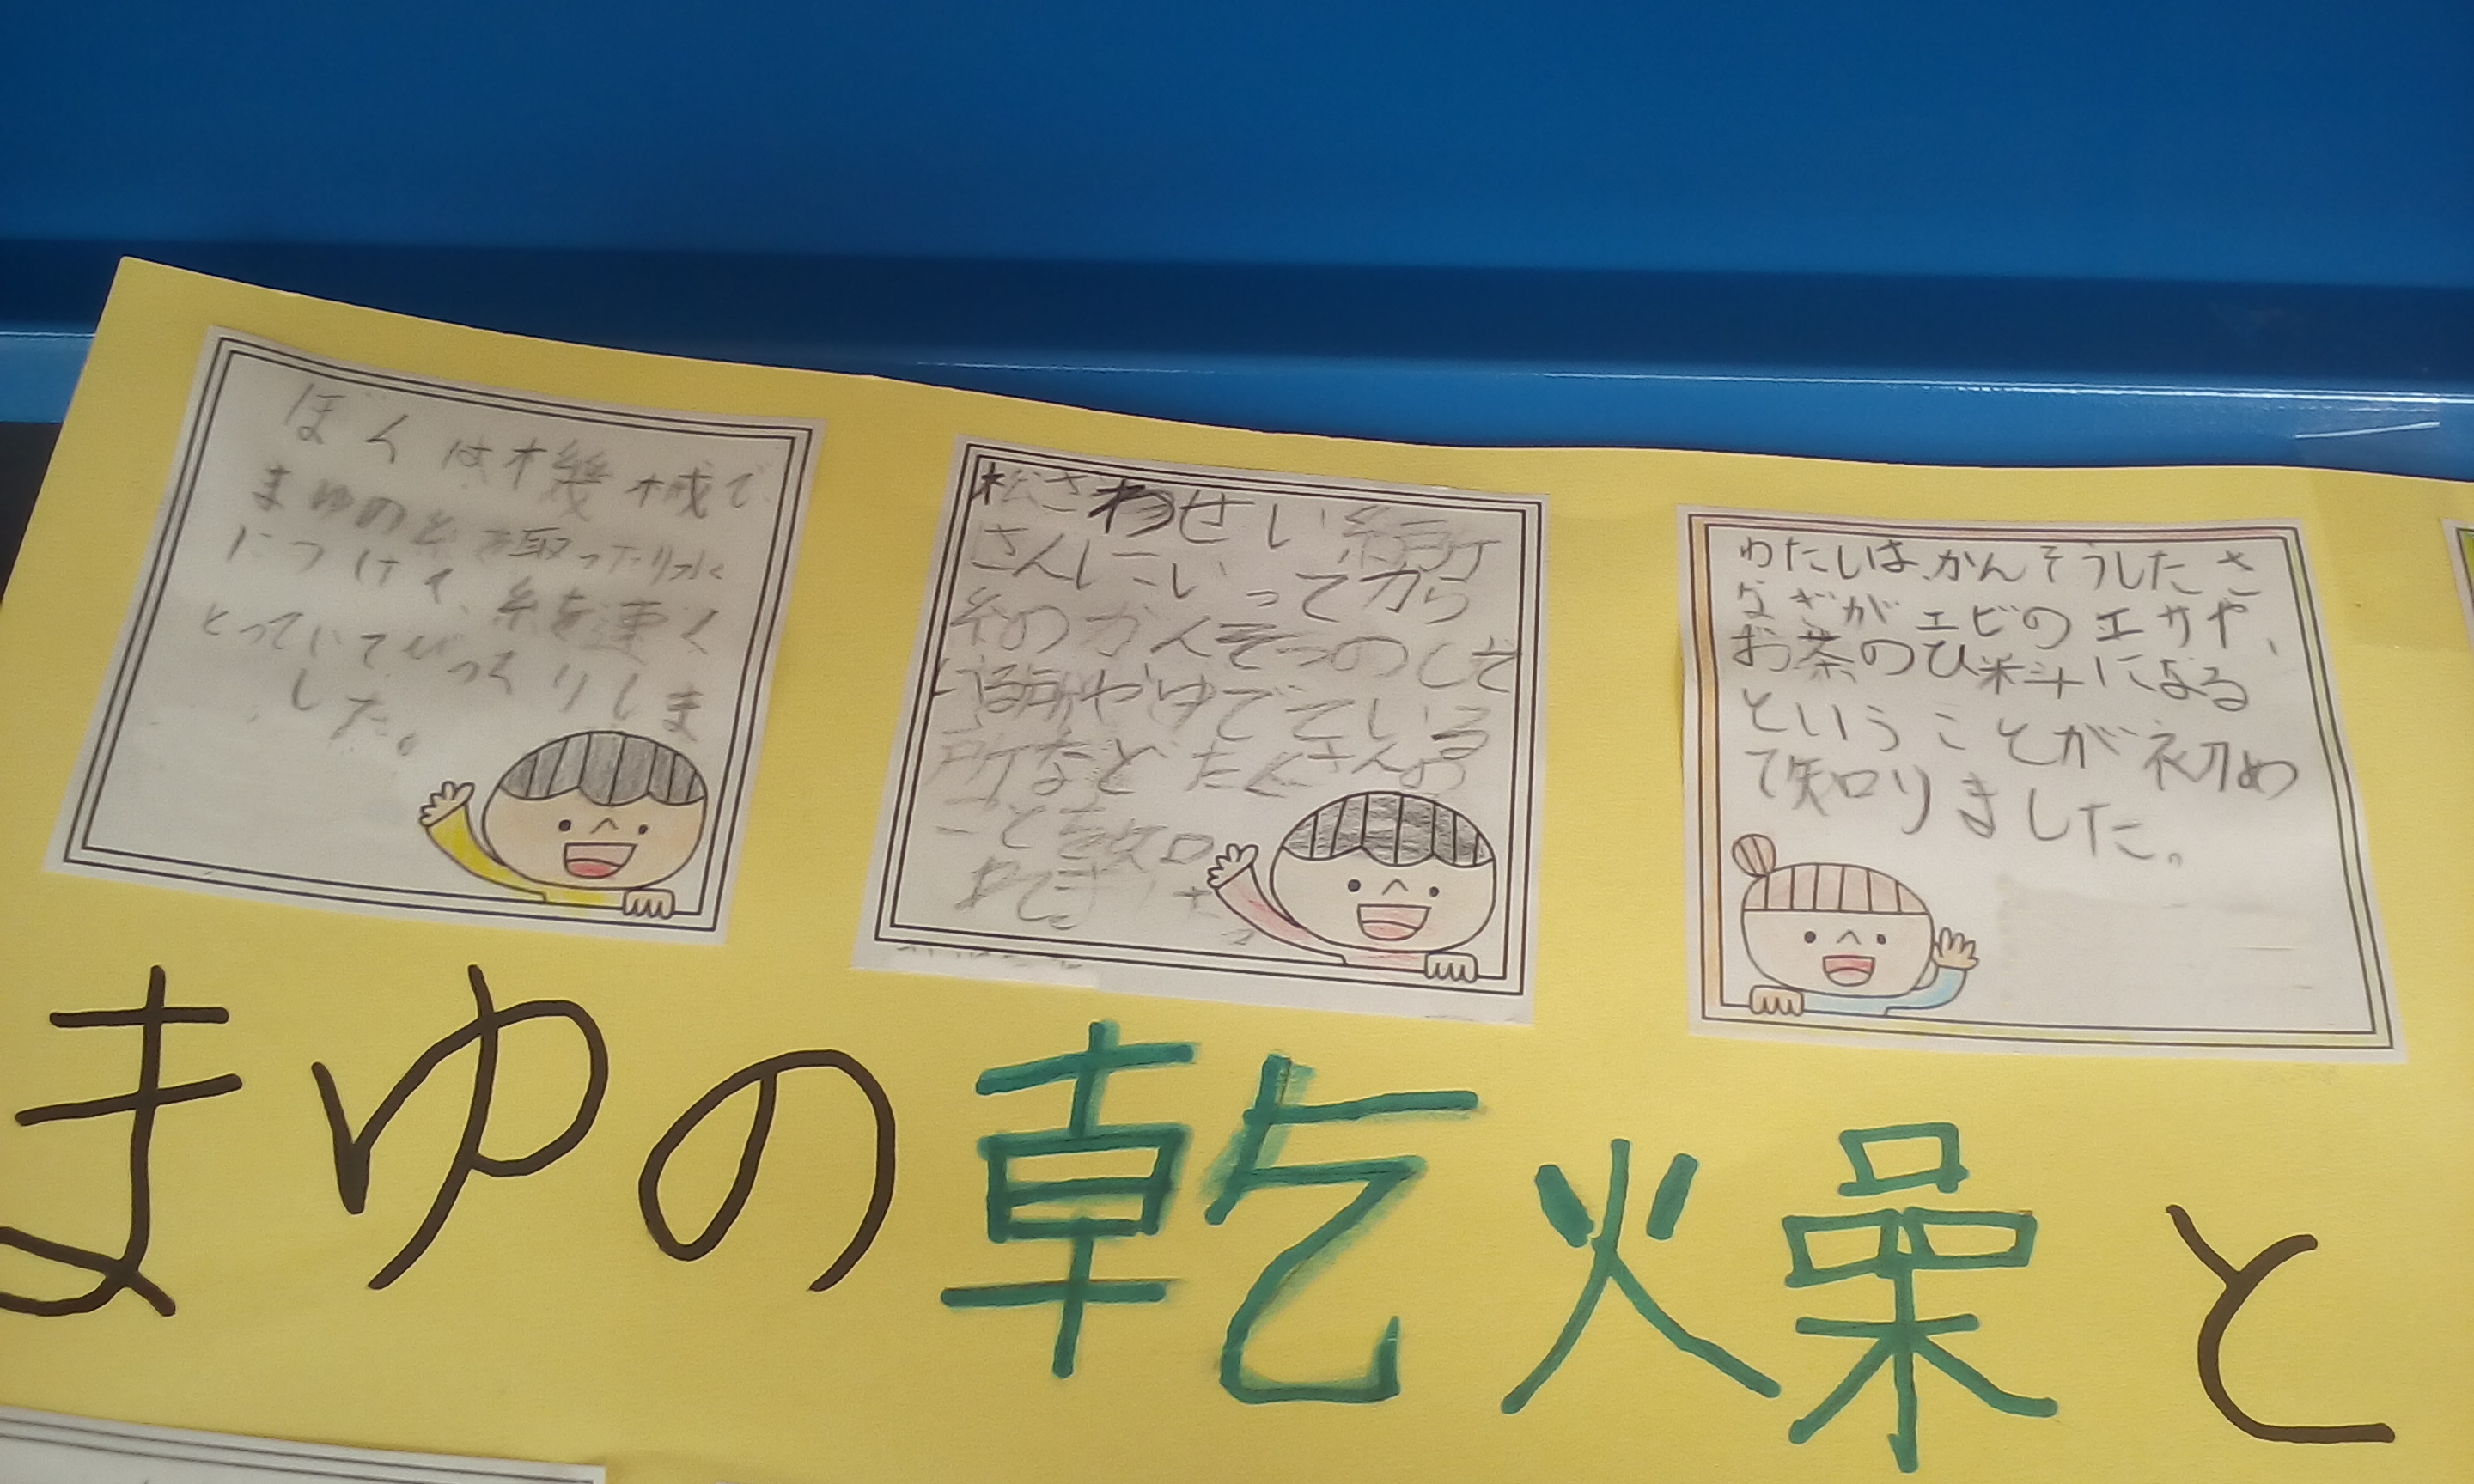 ぼくは機械で
まゆの糸を取ったり水
につけて、糸を速く
とっていてびっくりしま
した。
松さわせい糸所
さんにいってから
糸のかんそうのして
いる所やゆでている
所など たくさんの
ことを知
わたしは、かんそうしたさ
なぎがエビのエサや、
お茶のひ料になる
ということが初め
て知りました。
まゆの乾燥と